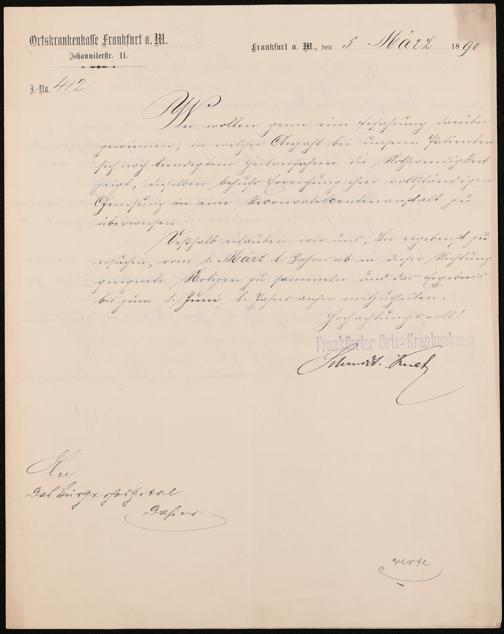 Ortskrankenkasse Frankfurt a. M.
Johanniterstr. 11.
Frankfurt a. M., den 5 März 1890
J.-No. 412.
Wir wollen gern eine Erfahrung darüber
gewinnen, in welcher Anzahl bei unseren Patienten
sich nach beendigtem Heilverfahren die Nothwendigkeit
zeigt, dieselben behufs Erreichung ihrer vollständigen
Genesung in eine Reconvalescentenanstalt zu
überweisen.
Deßhalb erlauben wir uns, Sie ergebenst zu
ersuchen, vom 1. März l. Jahres ab in dieser Richtung
geeignete Notizen zu sammeln und das Ergebnis
bis zum 1. Juni l. Jahres anher mitzutheilen.
Hochachtungsvoll!
Frankfurter Orts-Krankenkasse
Schmidt
An
das Bürgerhospital
Dahier.
verte